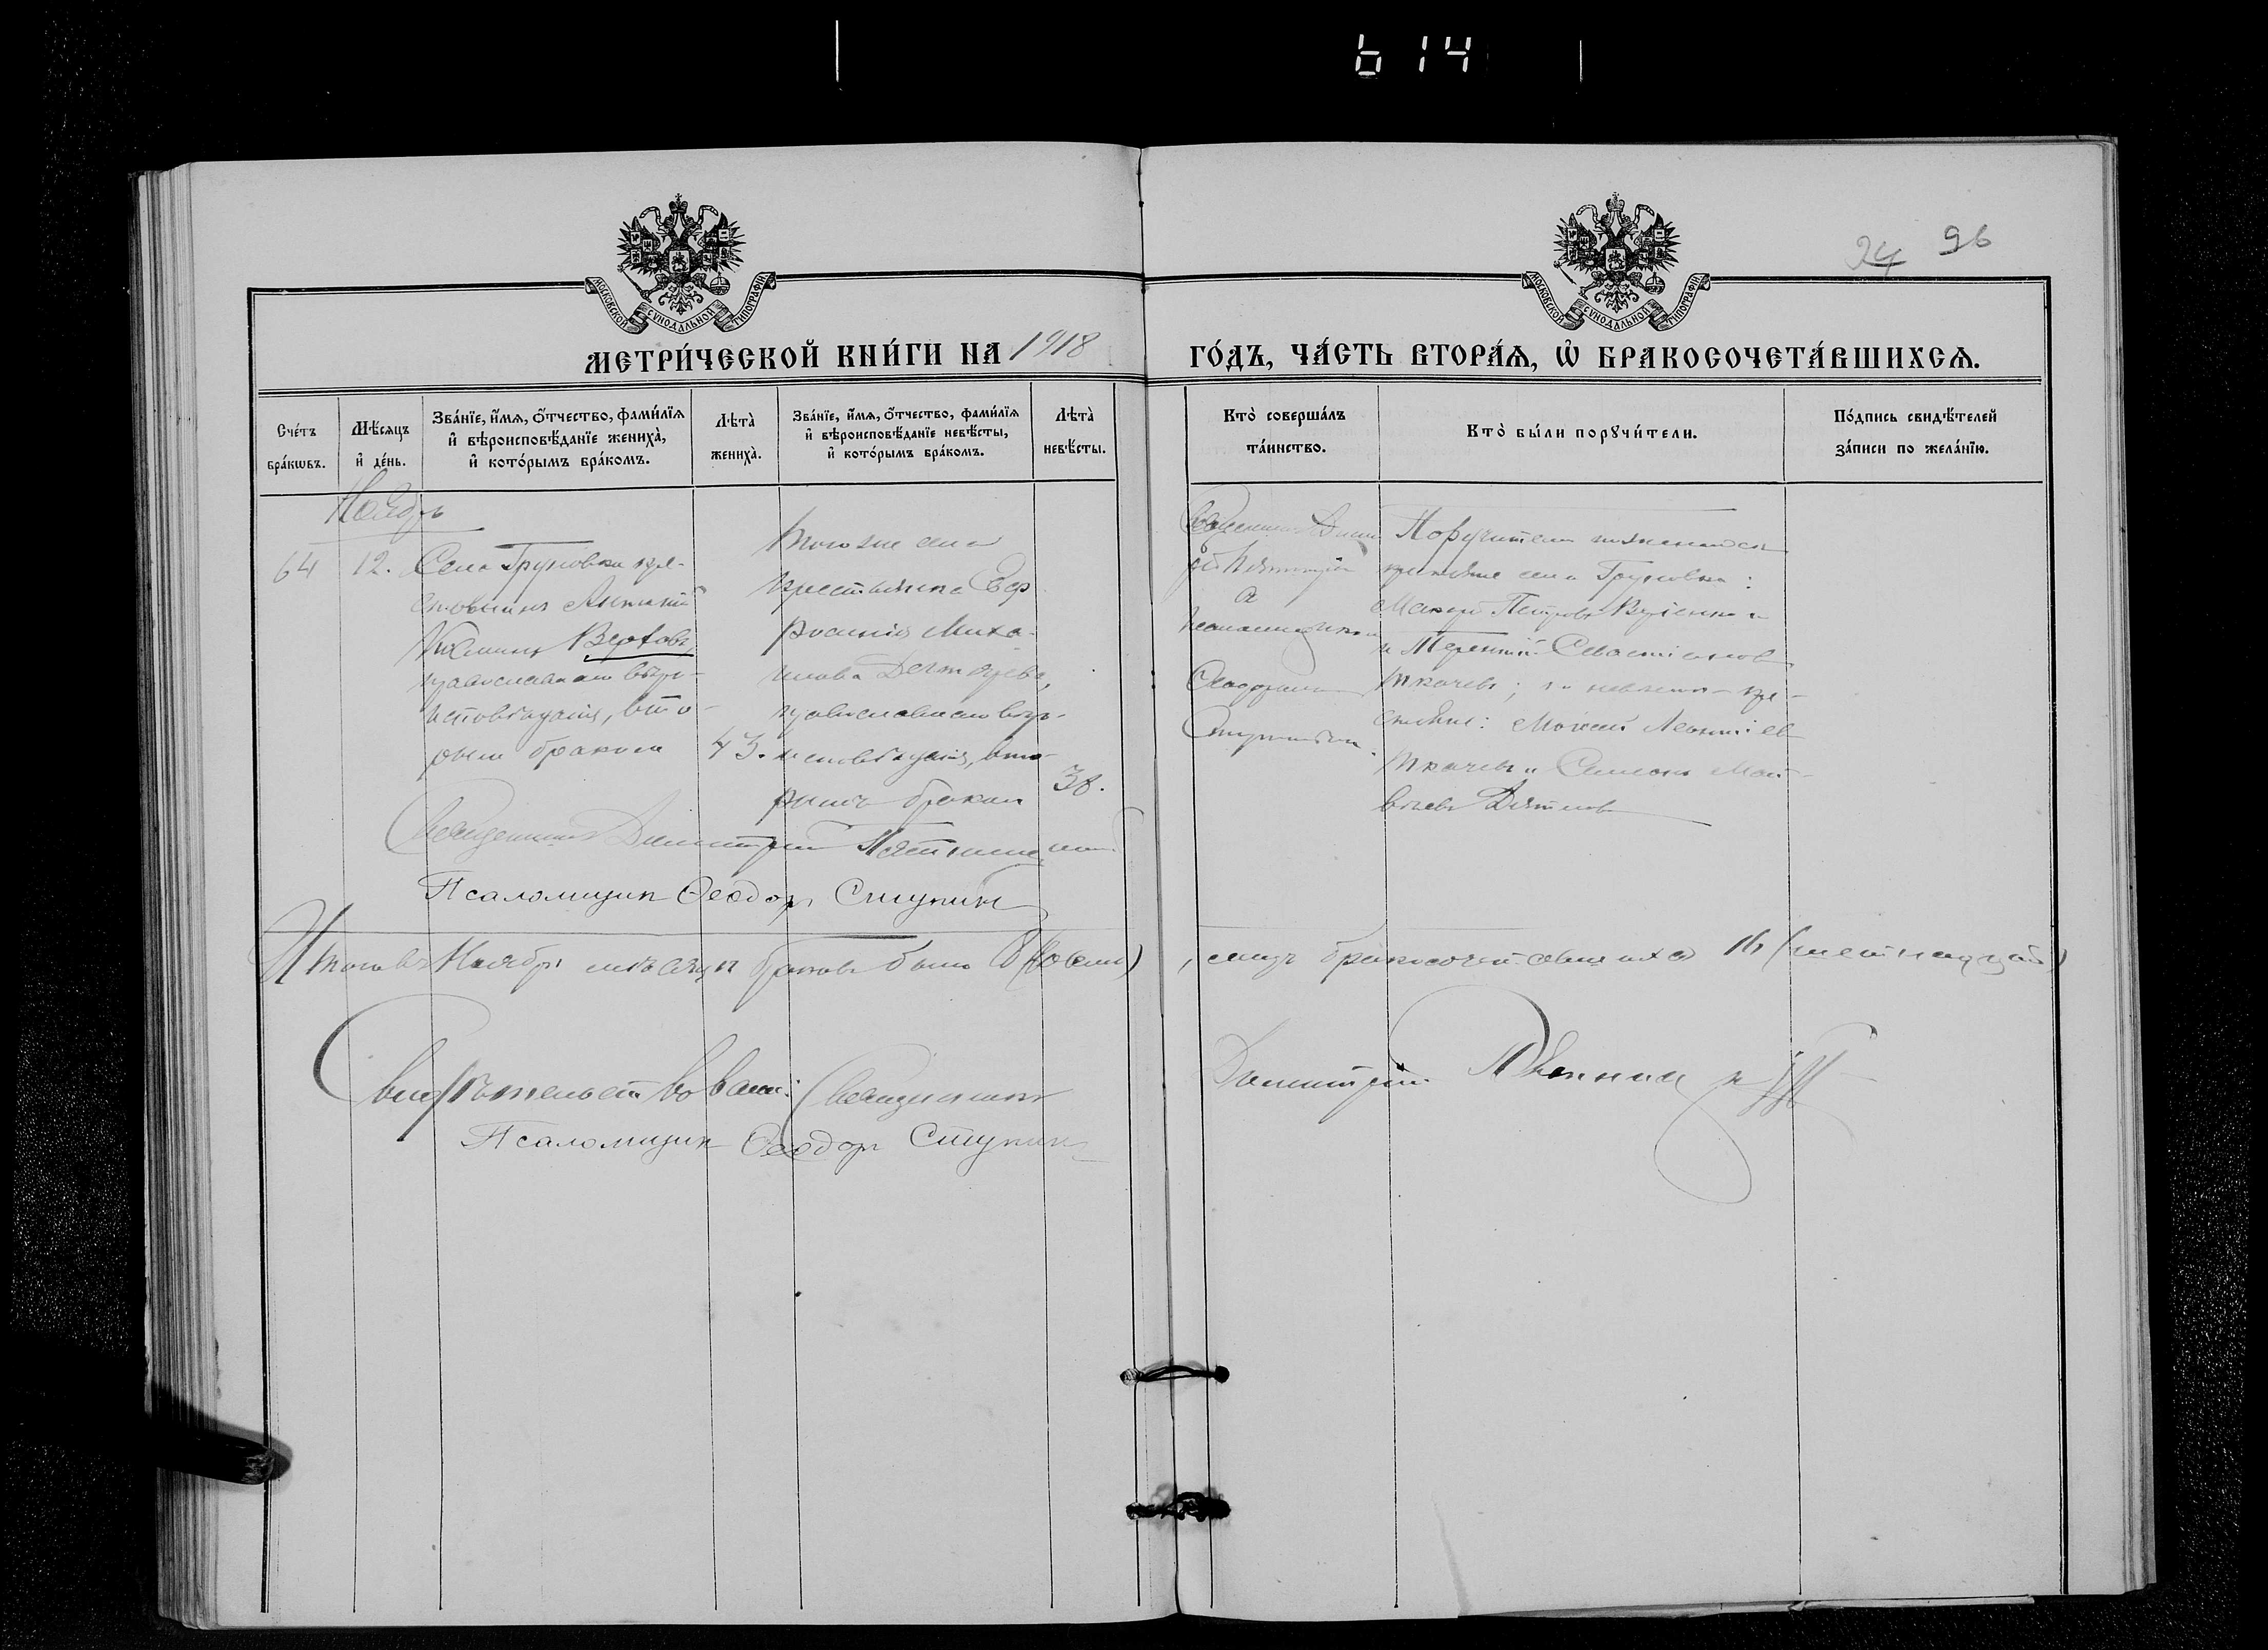 614
МОСКОВСКОЙ СѴНОДАЛЬНОЙ ТИПОГРАФІИ
МОСКОВСКОЙ СѴНОДАЛЬНОЙ ТИПОГРАФІИ
24 96
МЕТРИ́ЧЕСКОЙ КНИ́ГИ НА 1918
ГО́ДЪ, ЧА́СТЬ ВТОРА́Ѧ, Ѽ БРАКОСОЧЕТА́ВШИХСѦ.
Сче́тъ бра́кѡвъ.
Мѣ́сѧцъ и҆ де́нь.
Зва́нїе, и҆́мѧ, ѻ҆́тчество, фами́лїѧ и҆ вѣроисповѣ́данїе жениха̀, и҆ кото́рымъ бра́комъ.
Лѣта̀ жениха̀.
Зва́нїе, и҆́мѧ, ѻ҆́тчество, фами́лїѧ и҆ вѣроисповѣ́данїе невѣ́сты, и҆ кото́рымъ бра́комъ.
Лѣта̀ невѣ́сты.
Кто̀ соверша́лъ та́инство.
Кто̀ бы́ли порꙋчи́тели.
По́дпись свидѣ́телей за́писи по жела́нїю.
Ноябрь
64
12.
Села Груновки кре-
стьянинъ
православнаго вѣро-
исповѣданія, вто-
рымъ бракомъ
43.
того же села
крестьянка Евф
росинія Миха-
илова
православнаго вѣро-
исповѣданія, вто-
рымъ бракомъ
38.
Священникъ Дими
и
псаломщикъ
Ѳеодоръ
Ступинъ.
Поручители по женихѣ
крестьяне села Груновки:
Петровъ
и Терентій Севастіановъ
Ткачевъ; по невѣстѣ кре-
стьяне: Моисей Леонтіев
Ткачевъ и Симеонъ Мат-
вѣевъ Дятловъ
Священникъ Димитрій
Псаломщикъ Ѳеодоръ Ступинъ
Итого въ Ноябрѣ мѣсяцѣ браковъ было 8 (восемь)
, лицъ бракосочетавшихся 16 (шестнадцать)
Свидѣтельствовали: Священникъ
Димитрій
Псаломщикъ Ѳеодоръ Ступинъ